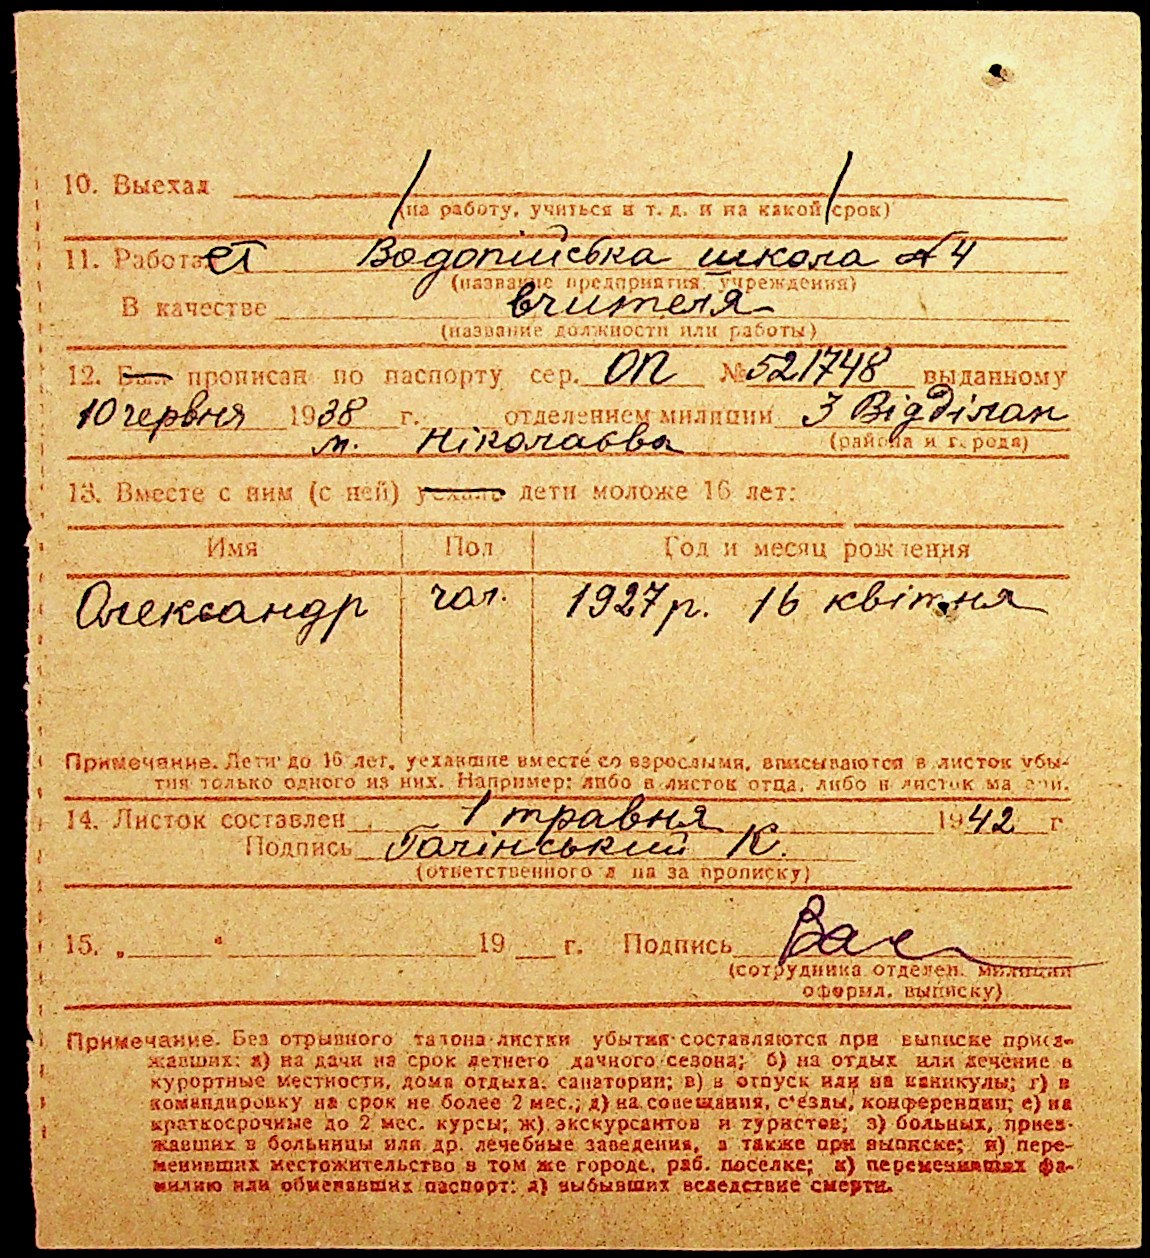 10. Выехал
(на работу, учиться и т. д. и на какой срок)
11. Работа ет Водопійська школа № 4
(название предприятия, учреждения)
В качестве вчителя
(название должности или работы)
12. Был прописан по паспорту сер. ОП № 521748 выданному
10 червня 1938 г. отделением милиции 3 Відділан
м. Ніколаєва (района и города)
13. Вместе с ним (с ней) уехало дети моложе 16 лет:
Имя Пол Год и месяц рождения
Олександр чол. 1927 р. 16 квітня
Примечание. Дети до 16 лет, уехавшие вместе со взрослыми, вписываются в листок убы-
тия только одного из них. Например: либо в листок отца, либо в листок матери.
14. Листок составлен 1 травня 1942 г
Подпись Гачінський К.
(ответственного лица за прописку)
15. „ “ 19 г. Подпись
(сотрудника отделен. милиции
оформл. выписку)
Примечание. Без отрывного талона листки убытия составляются при выписке приез-
жавших: а) на дачи на срок летнего дачного сезона; б) на отдых или лечение в
курортные местности, дома отдыха, санатории; в) в отпуск или на каникулы; г) в
командировку на срок не более 2 мес.; д) на совещания, с'езды, конференции; е) на
краткосрочные до 2 мес. курсы; ж) экскурсантов и туристов; з) больных, приез-
жавших в больницы или др. лечебные заведения, а также при выписке; и) пере-
менивших местожительство в том же городе, раб. поселке; к) переменивших фа-
милию или обменявших паспорт; л) выбывших вследствие смерти.